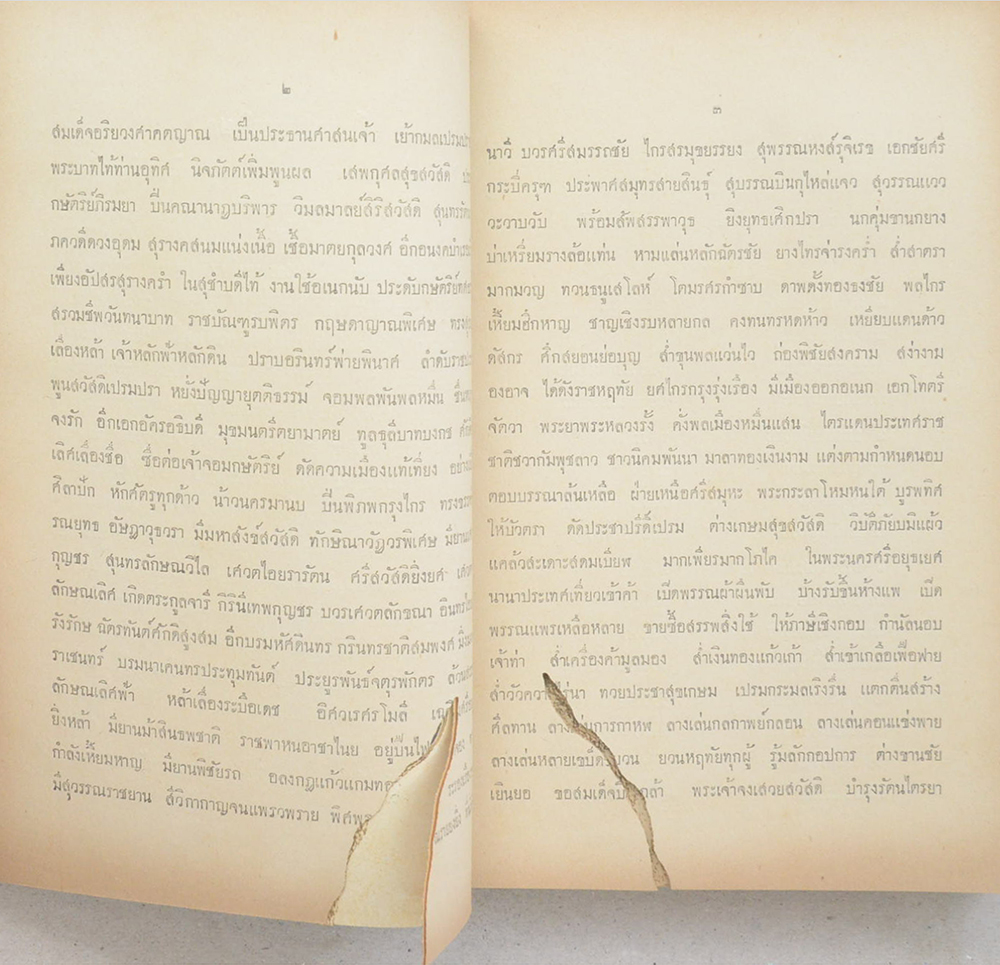 ๒
สมเด็จอริยวงศาคตญาณ เป็นประธานศาสนเจ้า เย้ากมลเปรมปรา
พระบาทไท้ท่านอุทิศ นิจภัตต์เพิ่มพูนผล เสพกุศลสุขสวัสดิ
กษัตริย์ภิรมยา ปิ่นคณานาฏบริพาร วิมลมาลย์สิริสวัสดิ
ภควดีดวงอุดม สุรางคสนมแน่งเนื้อ เชื้อมาตยกุลวงศ์
เพียงอัปสรสุรางครำ ในสุขำบดีไท้ งานใช้อเนกนับ ประดับกษัตริย์
สรวมชีพวันทนาบาท ราชบัณฑูรบพิตร กฤษดาญาณพิเศษ
เลื่องหล้า เจ้าหลักฟ้าหลักดิน ปราบอรินทร์พ่ายพินาศ
พูนสวัสดิเปรมปรา หยั่งปัญญายุตติธรรม์ จอมพลพันพลหมื่น
จงรัก อีกเอกอัครอธิบดี มุขมนตรีตยามาตย์ ทูลธุลีบาทบงกช
เลิศเลื่องชื่อ ซื่อต่อเจ้าจอมกษัตริย์ ดัดความเมืองแท้เที่ยง
ศิลาปัก หักศัตรูทุกด้าว น้าวนครมานบ ปิ่นพิภพกรุงไกร
รณยุทธ อัษฎาวุธวรา มีมหาสังข์สวัสดิ ทักษิณาวัฏวรพิเศษ
กุญชร สุนทรลักษณวิไล เศวตไอยรารัตน ศรีสวัสดิยิ่งยศ
ลักษณเลิศ เกิดตระกูลจารี กิรินีเทพกุญชร บวรเศวตลักขณา
รังรักษ ฉัตรทันต์ศักดิสูงสม อีกบรมหัศดินทร กรินทรชาติสมพงศ์
ราเชนทร์ บรมนาเคนทรประทุมทันต์ ประยูรพันธุ์จตุรพักตร
ลักษณเลิศฟ้า หล้าเลื่องระบือเดช อิศวเรศรโมลี
ยิ่งหล้า มียานม้าสินธพชาติ ราชพาหนอาชาไนย
กำลังเหี้ยมหาญ มียานพิชัยรถ อลงกฎแก้วแกม
มีสุวรรณราชยาน สีวิกากาญจนแพรวพราย
๓
นาวี บวรศรีสมรรถชัย ไกรสรมุขยรรยง สุพรรณหงส์รุจิเรข เอกชัยศรี
กระบี่ครุฑ ประพาศสมุทรสายสินธุ์ สุบรรณบินกุไหล่แจว สุวรรณแวว
วะวาบวับ พร้อมสัพสรรพาวุธ ยิงยุทธเศิกปรา นกคุ่มขานกยาง
บ่าเหรี่ยมรางล้อแท่น หามแล่นหลักฉัตรชัย ยางไทรจ่ารงคร่ำ ส่ำสาตรา
มากมวญ ทวนธนูเสโลห์ โตมรศรกำซาบ ดาพดั้งทองธงชัย พลไกร
เหี้ยมฮึกหาญ ชาญเชิงรบหลายกล คงทนทรหดห้าว เหยียบแดนด้าว
ดัสกร ศึกสยอนย่อบุญ ส่ำขุนพลแว่นไว ถ่องพิชัยสงคราม สง่างาม
องอาจ ได้ดั่งราชหฤทัย ยศไกรกรุงรุ่งเรือง มีเมืองออกอเนก เอกโทตรี
จัตวา พระยาพระหลวงรั้ง คั่งพลเมืองหมื่นแสน ไตรแดนประเทศราช
ชาติชวากัมพุชลาว ชาวนิคมพันนา มาลาทองเงินงาม แต่งตามกำหนดนอบ
ตอบบรรณาล้นเหลือ ฝ่ายเหนือศรีสมุหะ พระกระลาโหมหนใต้ บูรพทิศ
ให้บัวตรา ดัดประชาปรีดิ์เปรม ต่างเกษมสุขสวัสดิ วิบัติภัยบมีแผ้ว
แคล้วสะเดาะสดมเบียฬ มากเพียรมากโภไค ในพระนครศรีอยุธเยศ
นานาประเทศเที่ยวเข้าค้า เบิดพรรณผ้าผืนพับ บ้างรับขึ้นห้างแพ เบิด
พรรณแพรเหลือหลาย ขายซื้อสรรพสิ่งใช้ ให้ภาษีเชิงกอบ กำนัลนอบ
เจ้าท่า ส่ำเครื่องค้ามูลมอง ส่ำเงินทองแก้วเก้า ส่ำเข้าเกลือเพื่อฟาย
ส่ำวัวควายไร่นา ทวยประชาสุขเกษม เปรมกระมลเริงรื่น แตกตื่นสร้าง
ศีลทาน ลางเล่นการกาพย ลางเล่นกลกาพย์กลอน ลางเล่นคอนแข่งพาย
ลางเล่นหลายเขบ็ดขบวน ยวนหฤทัยทุกผู้ รู้มลักกอปการ ต่างขานชัย
เยินยอ ขอสมเด็จปิ่นเกล้า พระเจ้าจงเสวยสวัสดิ บำรุงรัตนไตรยา